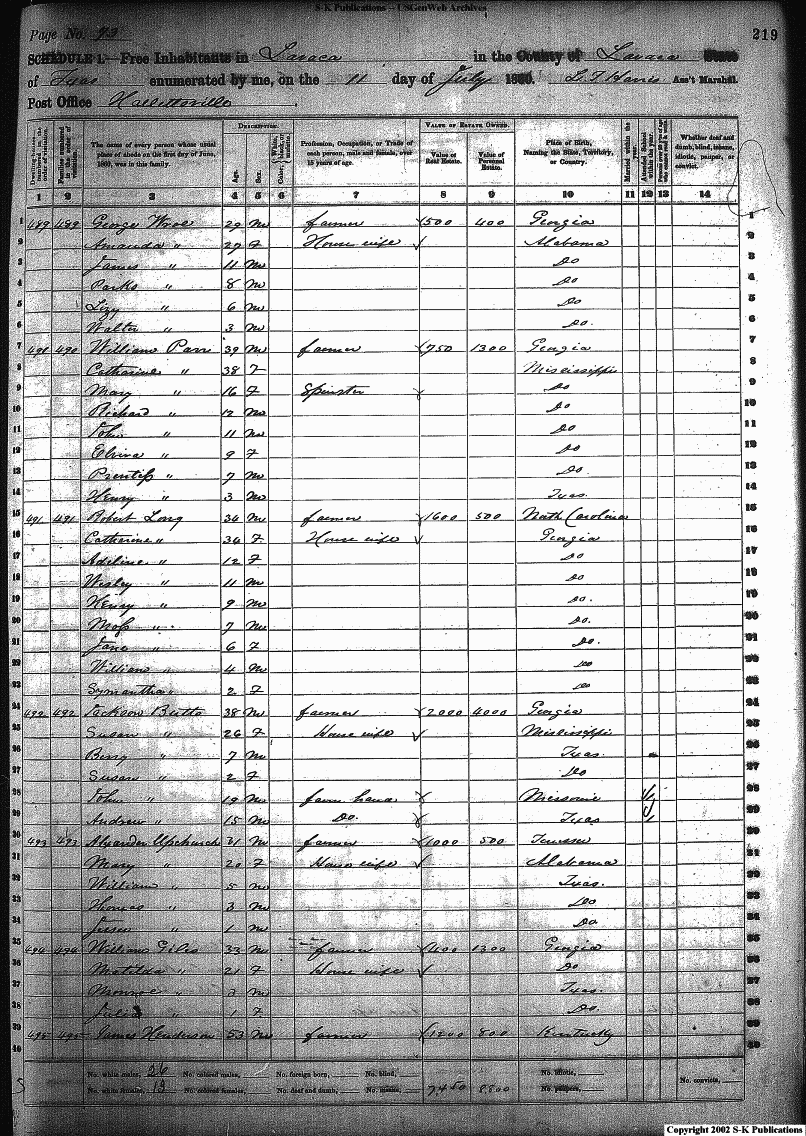 S-K Publications – USGenWeb Archives
Page No. 93
219
SCHEDULE 1.—Free Inhabitants in Lavaca in the County of Lavaca State
of Texas enumerated by me, on the 11 day of July 1860. Ass't Marshal.
Post Office Hallettsville
DESCRIPTION. VALUE OF ESTATE OWNED.
The name of every person whose usual place of abode on the first day of June, 1860, was in this family.
Age. Sex.
Profession, Occupation, or Trade of each person, male and female, over 15 years of age.
Value of Real Estate. Value of Personal Estate.
Place of Birth, Naming the State, Territory, or Country.
Married within the year.
Whether deaf and dumb, blind, insane, idiotic, pauper, or convict.
1 2 3 4 5 6 7 8 9 10 11 12 13 14
1 489 489 George Wroe 29 M farmer 500 400 Georgia 1
2 Amanda " 27 F House wife Alabama 2
3 James " 11 M Do 3
4 Parks " 8 M Do 4
5 Lizy " 6 Do 5
6 Walter " 3 M Do. 6
7 490 William Parr 39 M farmer 750 1300 Georgia 7
8 Catharine " 38 F Mississippi 8
9 Mary " 16 F Spinster Do 9
10 Richard " 12 M Do 10
11 John " 11 M Do 11
12 Elvira " 9 F Do 12
13 Prentiss " 7 M Do. 13
14 Henry " 3 M Texas. 14
15 491 491 Robert Long 34 M farmer 1600 500 North Carolina 15
16 Catharine " 34 F House wife Georgia 16
17 Adiline " 12 F Do 17
18 Wesley " 11 M Do 18
19 Henry " 9 M Do. 19
20 Moss " 7 M Do. 20
21 Jane " 6 F Do. 21
22 William " 4 M Do 22
23 Symantha " 2 F Do 23
24 492 492 Jackson Butts 38 M farmer 2000 4000 Georgia 24
25 Susan " 26 F House wife Mississippi 25
26 Berry " 7 M Texas. 26
27 Susan " 2 F Do 27
28 John " 19 M farm hand Missouri 28
29 Andrew " 15 M Do. Texas 29
30 493 493 Alxander Upchurch 31 M farmer 1000 500 Tennessee 30
31 Mary " 20 F House wife Alabama 31
32 William " 5 M Texas. 32
33 Thomas " 3 M Do 33
34 " 1 M Do 34
35 494 494 William Giles 33 M farmer 400 1300 Georgia 35
36 Matilda " 21 F House wife Do 36
37 Monroe " 3 M Texas. 37
38 " 1 F Do. 38
39 495 495 James Henderson 53 M farmer 1200 800 Kentucky 39
40 40
No. white males, 26 No. colored males, No. foreign born, No. blind, No. idiotic,
No. white females, 13 No. colored females, No. deaf and dumb, No. insane, 7450 8800 No. paupers, No. convicts,
Copyright 2002 S-K Publications